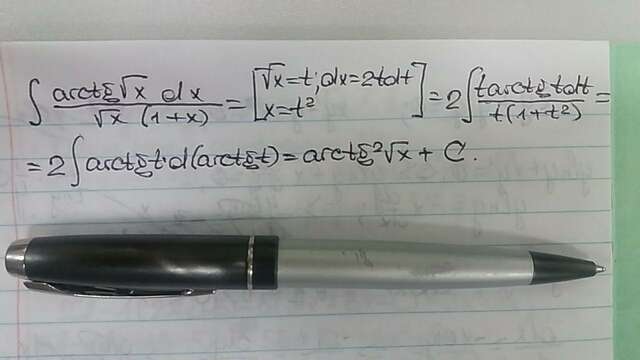 ∫ arctg√x dx / √x (1+x) = [√x=t; dx=2tdt x=t²] = 2∫ t arctg t dt / t(1+t²) =
= 2∫ arctg t·d(arctg t) = arctg²√x + C.